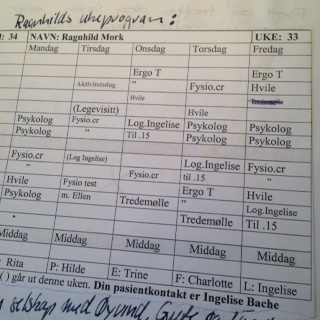 Ragnhilds ukeprogram:
: 34 NAVN: Ragnhild Mork UKE: 33
Mandag Tirsdag Onsdag Torsdag Fredag
Ergo T Ergo T
Aktivitetsdag " Fysio.cr Hvile
Hvile
(Legevisitt) Hvile
Psykolog Fysio.cr Log.Ingelise Psykolog Psykolog
Psykolog " Til .15 Psykolog Psykolog
Fysio.cr (Log Ingelise) Log.Ingelise Fysio.cr
" Fysio.cr til .15 "
Hvile Fysio test Ergo T Hvile
Psykolog m. Ellen Tredemølle " Log.Ingelise
Tredemølle Til .15
Middag Middag Middag Middag Middag
: Rita P: Hilde E: Trine F: Charlotte L: Ingelise
( ) går ut denne uken. Din pasientkontakt er Ingelise Bache
selskap med Øyvind,